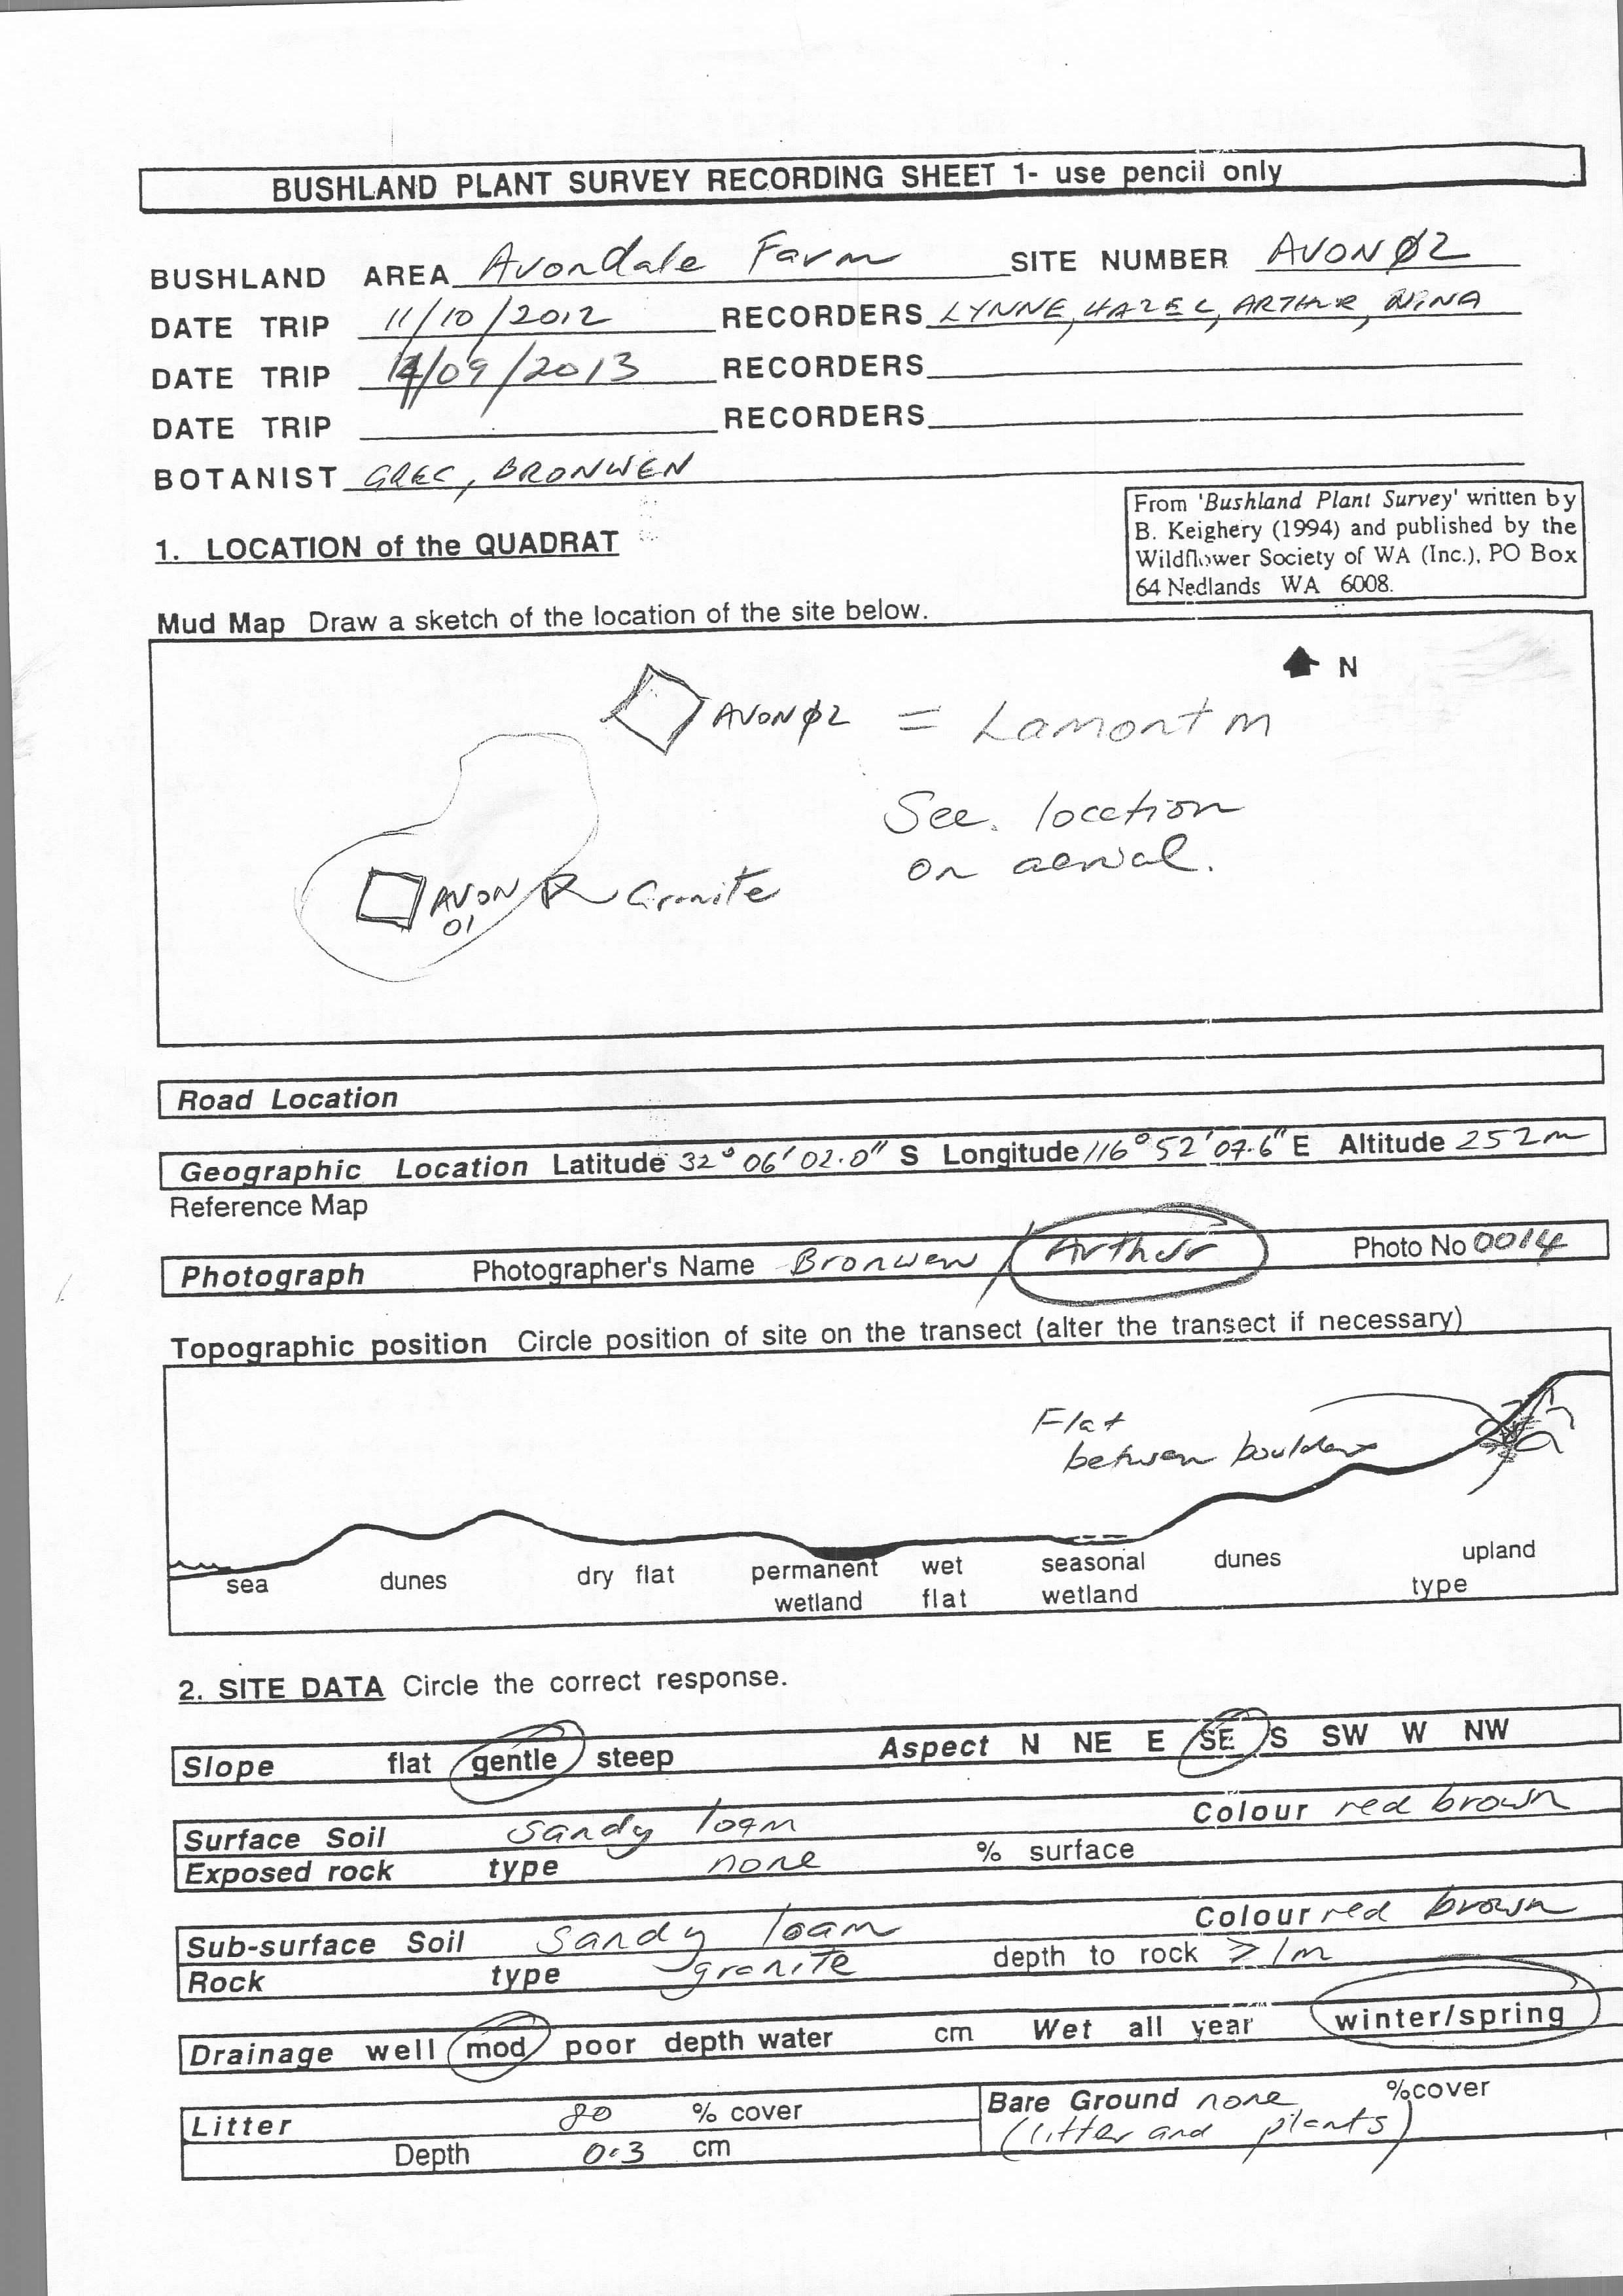 BUSHLAND PLANT SURVEY RECORDING SHEET 1- use pencil only
BUSHLAND AREA Avondale Farm SITE NUMBER AVONØ2
DATE TRIP 11/10/2012 RECORDERS LYNNE, HAZEL, ARTHUR, NINA
DATE TRIP /09/2013 RECORDERS
DATE TRIP RECORDERS
BOTANIST GREG, BRONWEN
From 'Bushland Plant Survey' written by
B. Keighery (1994) and published by the
Wildflower Society of WA (Inc.), PO Box
64 Nedlands WA 6008.
1. LOCATION of the QUADRAT
Mud Map Draw a sketch of the location of the site below.
N
AVONØ2 = Lamont m
See. location
on aerial.
AVON Granite
01
Road Location
Geographic Location Latitude 32° 06' 02.0" S Longitude 116° 52' 07.6" E Altitude 252m
Reference Map
Photograph Photographer's Name Bronwen / Arthur Photo No 0014
Topographic position Circle position of site on the transect (alter the transect if necessary)
Flat
between boulders
sea dunes dry flat permanent wet seasonal dunes upland
wetland flat wetland type
2. SITE DATA Circle the correct response.
Slope flat gentle steep Aspect N NE E SE S SW W NW
Surface Soil sandy loam Colour red brown
Exposed rock type none % surface
Sub-surface Soil sandy loam Colour red brown
Rock type granite depth to rock ≥1m
Drainage well mod poor depth water cm Wet all year winter/spring
Litter 80 % cover Bare Ground none %cover
Depth 0.3 cm (litter and plants)